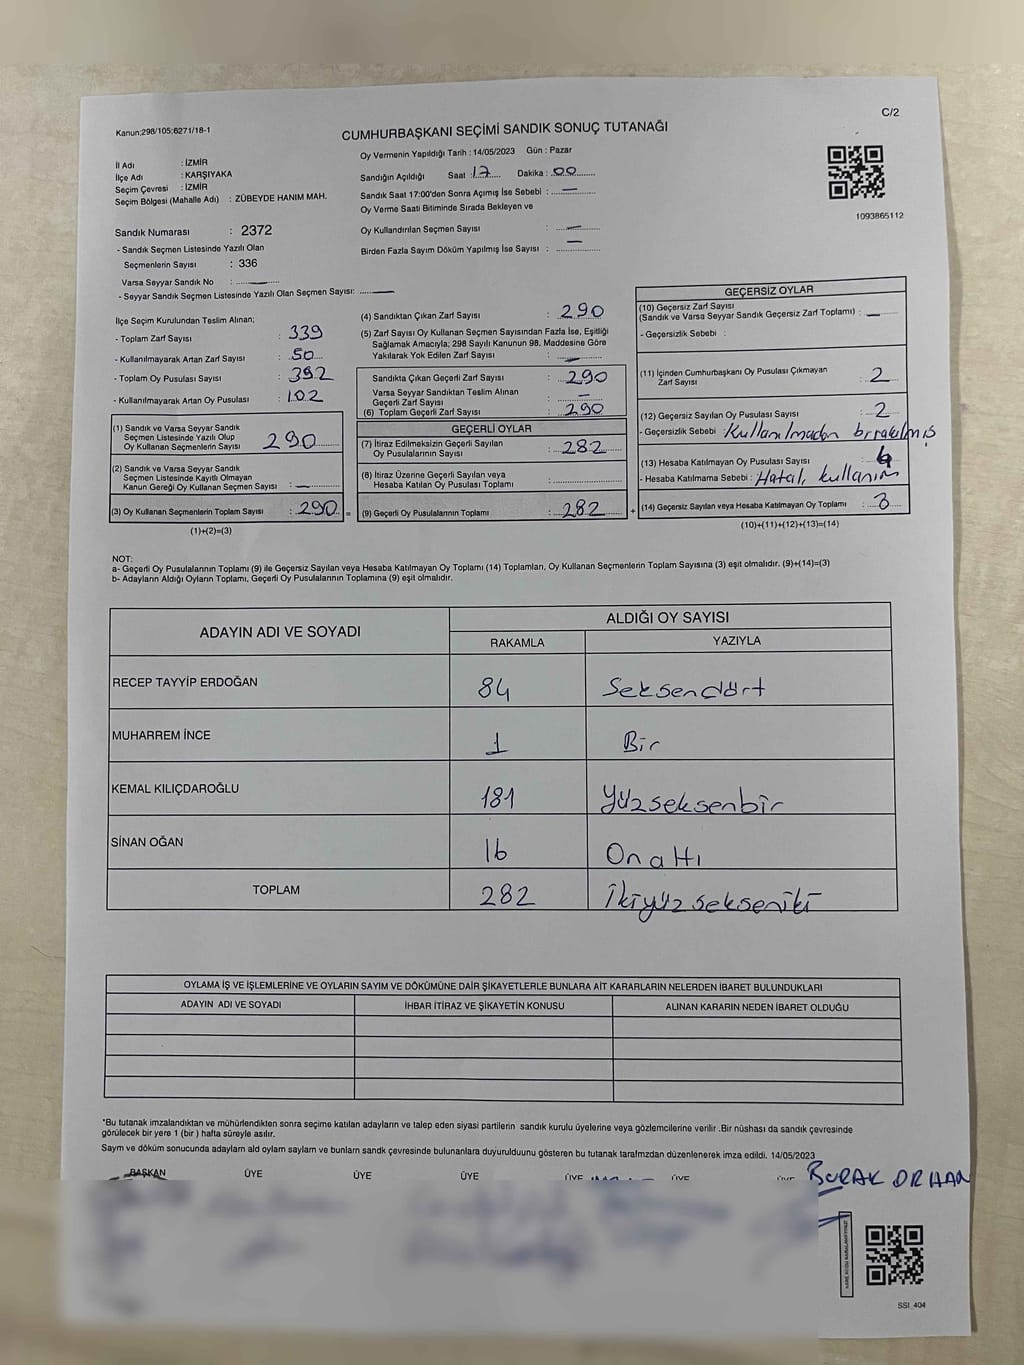 C/2
Kanun;298/105;6271/18-1
CUMHURBAŞKANI SEÇİMİ SANDIK SONUÇ TUTANAĞI
İl Adı : İZMİR
İlçe Adı : KARŞIYAKA
Seçim Çevresi : İZMİR
Seçim Bölgesi (Mahalle Adı) : ZÜBEYDE HANIM MAH.
Oy Vermenin Yapıldığı Tarih : 14/05/2023 Gün : Pazar
Sandığın Açıldığı Saat : 17 Dakika : 00
Sandık Saat 17:00'den Sonra Açımış İse Sebebi : —
Oy Verme Saati Bitiminde Sırada Bekleyen ve
Oy Kullandırılan Seçmen Sayısı : —
Birden Fazla Sayım Döküm Yapılmış İse Sayısı : —
1093865112
Sandık Numarası : 2372
- Sandık Seçmen Listesinde Yazılı Olan
Seçmenlerin Sayısı : 336
Varsa Seyyar Sandık No : —
- Seyyar Sandık Seçmen Listesinde Yazılı Olan Seçmen Sayısı: —
İlçe Seçim Kurulundan Teslim Alınan;
- Toplam Zarf Sayısı : 339
- Kullanılmayarak Artan Zarf Sayısı : 50
- Toplam Oy Pusulası Sayısı : 392
- Kullanılmayarak Artan Oy Pusulası : 102
(1) Sandık ve Varsa Seyyar Sandık
Seçmen Listesinde Yazılı Olup
Oy Kullanan Seçmenlerin Sayısı : 290
(2) Sandık ve Varsa Seyyar Sandık
Seçmen Listesinde Kayıtlı Olmayan
Kanun Gereği Oy Kullanan Seçmen Sayısı : —
(3) Oy Kullanan Seçmenlerin Toplam Sayısı : 290 =
(1)+(2)=(3)
(4) Sandıktan Çıkan Zarf Sayısı : 290
(5) Zarf Sayısı Oy Kullanan Seçmen Sayısından Fazla İse, Eşitliği
Sağlamak Amacıyla; 298 Sayılı Kanunun 98. Maddesine Göre
Yakılarak Yok Edilen Zarf Sayısı : —
Sandıkta Çıkan Geçerli Zarf Sayısı : 290
Varsa Seyyar Sandıktan Teslim Alınan
Geçerli Zarf Sayısı : —
(6) Toplam Geçerli Zarf Sayısı : 290
GEÇERLİ OYLAR
(7) İtiraz Edilmeksizin Geçerli Sayılan
Oy Pusulalarının Sayısı : 282
(8) İtiraz Üzerine Geçerli Sayılan veya
Hesaba Katılan Oy Pusulası Toplamı :
(9) Geçerli Oy Pusulalarının Toplamı : 282 +
GEÇERSİZ OYLAR
(10) Geçersiz Zarf Sayısı
(Sandık ve Varsa Seyyar Sandık Geçersiz Zarf Toplamı) : —
- Geçersizlik Sebebi :
(11) İçinden Cumhurbaşkanı Oy Pusulası Çıkmayan
Zarf Sayısı : 2
(12) Geçersiz Sayılan Oy Pusulası Sayısı : 2
- Geçersizlik Sebebi : Kullanılmadan bırakılmış
(13) Hesaba Katılmayan Oy Pusulası Sayısı : 4
- Hesaba Katılmama Sebebi : Hatalı kullanım
(14) Geçersiz Sayılan veya Hesaba Katılmayan Oy Toplamı :
(10)+(11)+(12)+(13)=(14)
NOT:
a- Geçerli Oy Pusulalarının Toplamı (9) ile Geçersiz Sayılan veya Hesaba Katılmayan Oy Toplamı (14) Toplamları, Oy Kullanan Seçmenlerin Toplam Sayısına (3) eşit olmalıdır. (9)+(14)=(3)
b- Adayların Aldığı Oyların Toplamı, Geçerli Oy Pusulalarının Toplamına (9) eşit olmalıdır.
ADAYIN ADI VE SOYADI ALDIĞI OY SAYISI
RAKAMLA YAZIYLA
RECEP TAYYİP ERDOĞAN 84 Seksendört
MUHARREM İNCE 1 Bir
KEMAL KILIÇDAROĞLU 181 Yüzseksenbir
SİNAN OĞAN 16 Onaltı
TOPLAM 282 İkiyüzsekseniki
OYLAMA İŞ VE İŞLEMLERİNE VE OYLARIN SAYIM VE DÖKÜMÜNE DAİR ŞİKAYETLERLE BUNLARA AİT KARARLARIN NELERDEN İBARET BULUNDUKLARI
ADAYIN ADI VE SOYADI İHBAR İTİRAZ VE ŞİKAYETİN KONUSU ALINAN KARARIN NEDEN İBARET OLDUĞU
*Bu tutanak imzalandıktan ve mühürlendikten sonra seçime katılan adayların ve talep eden siyasi partilerin sandık kurulu üyelerine veya gözlemcilerine verilir .Bir nüshası da sandık çevresinde
görülecek bir yere 1 (bir ) hafta süreyle asılır.
Sayım ve döküm sonucunda adayların ald oylam sayları ve bunların sandık çevresinde bulunanlara duyurulduunu gösteren bu tutanak tarafmzdan düzenlenerek imza edildi. 14/05/2023
BAŞKAN ÜYE ÜYE ÜYE ÜYE ÜYE ÜYE
BURAK ORHAN
SSI_404